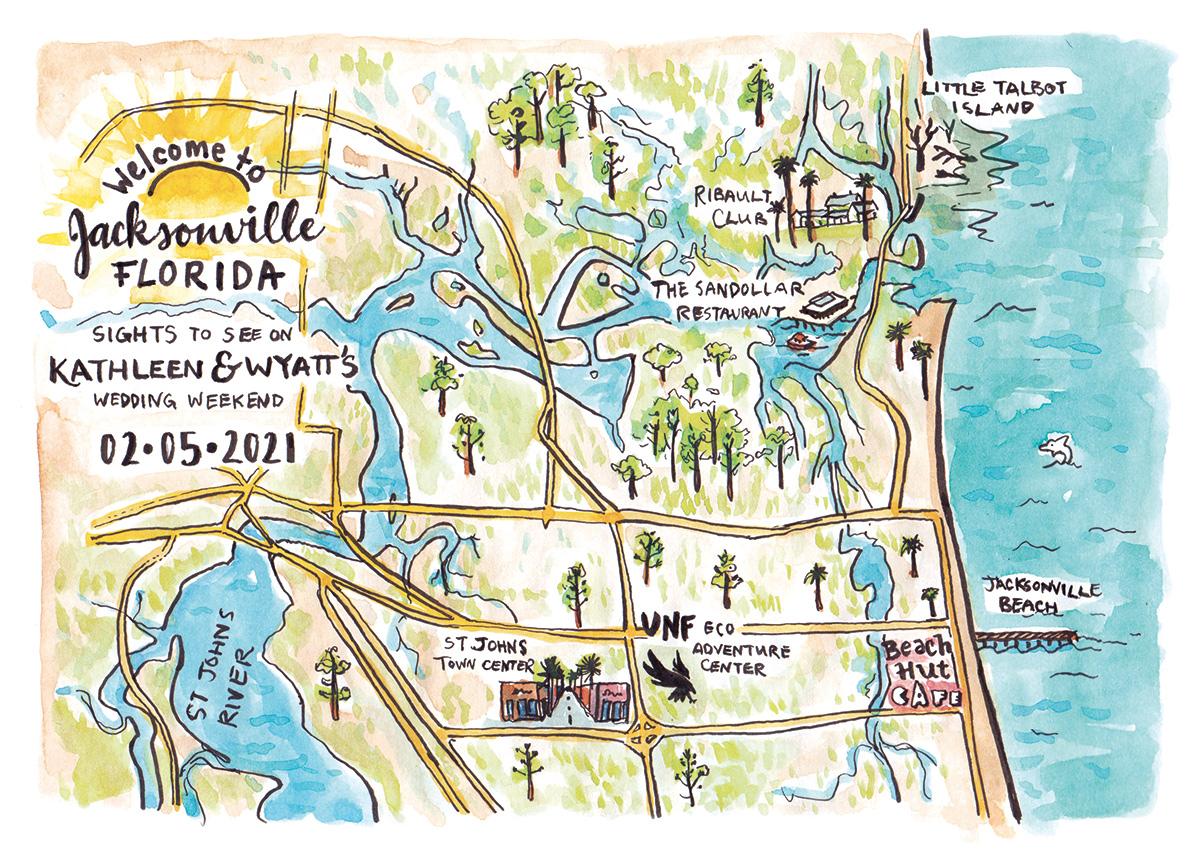 Welcome to
Jacksonville
FLORIDA
SIGHTS TO SEE ON
KATHLEEN & WYATT'S
WEDDING WEEKEND
02•05•2021
LITTLE TALBOT
ISLAND
RIBAULT
CLUB
THE SANDOLLAR
RESTAURANT
JACKSONVILLE
BEACH
ST JOHNS
RIVER
ST JOHNS
TOWN CENTER
UNF ECO
ADVENTURE
CENTER
Beach
Hut
CAFE